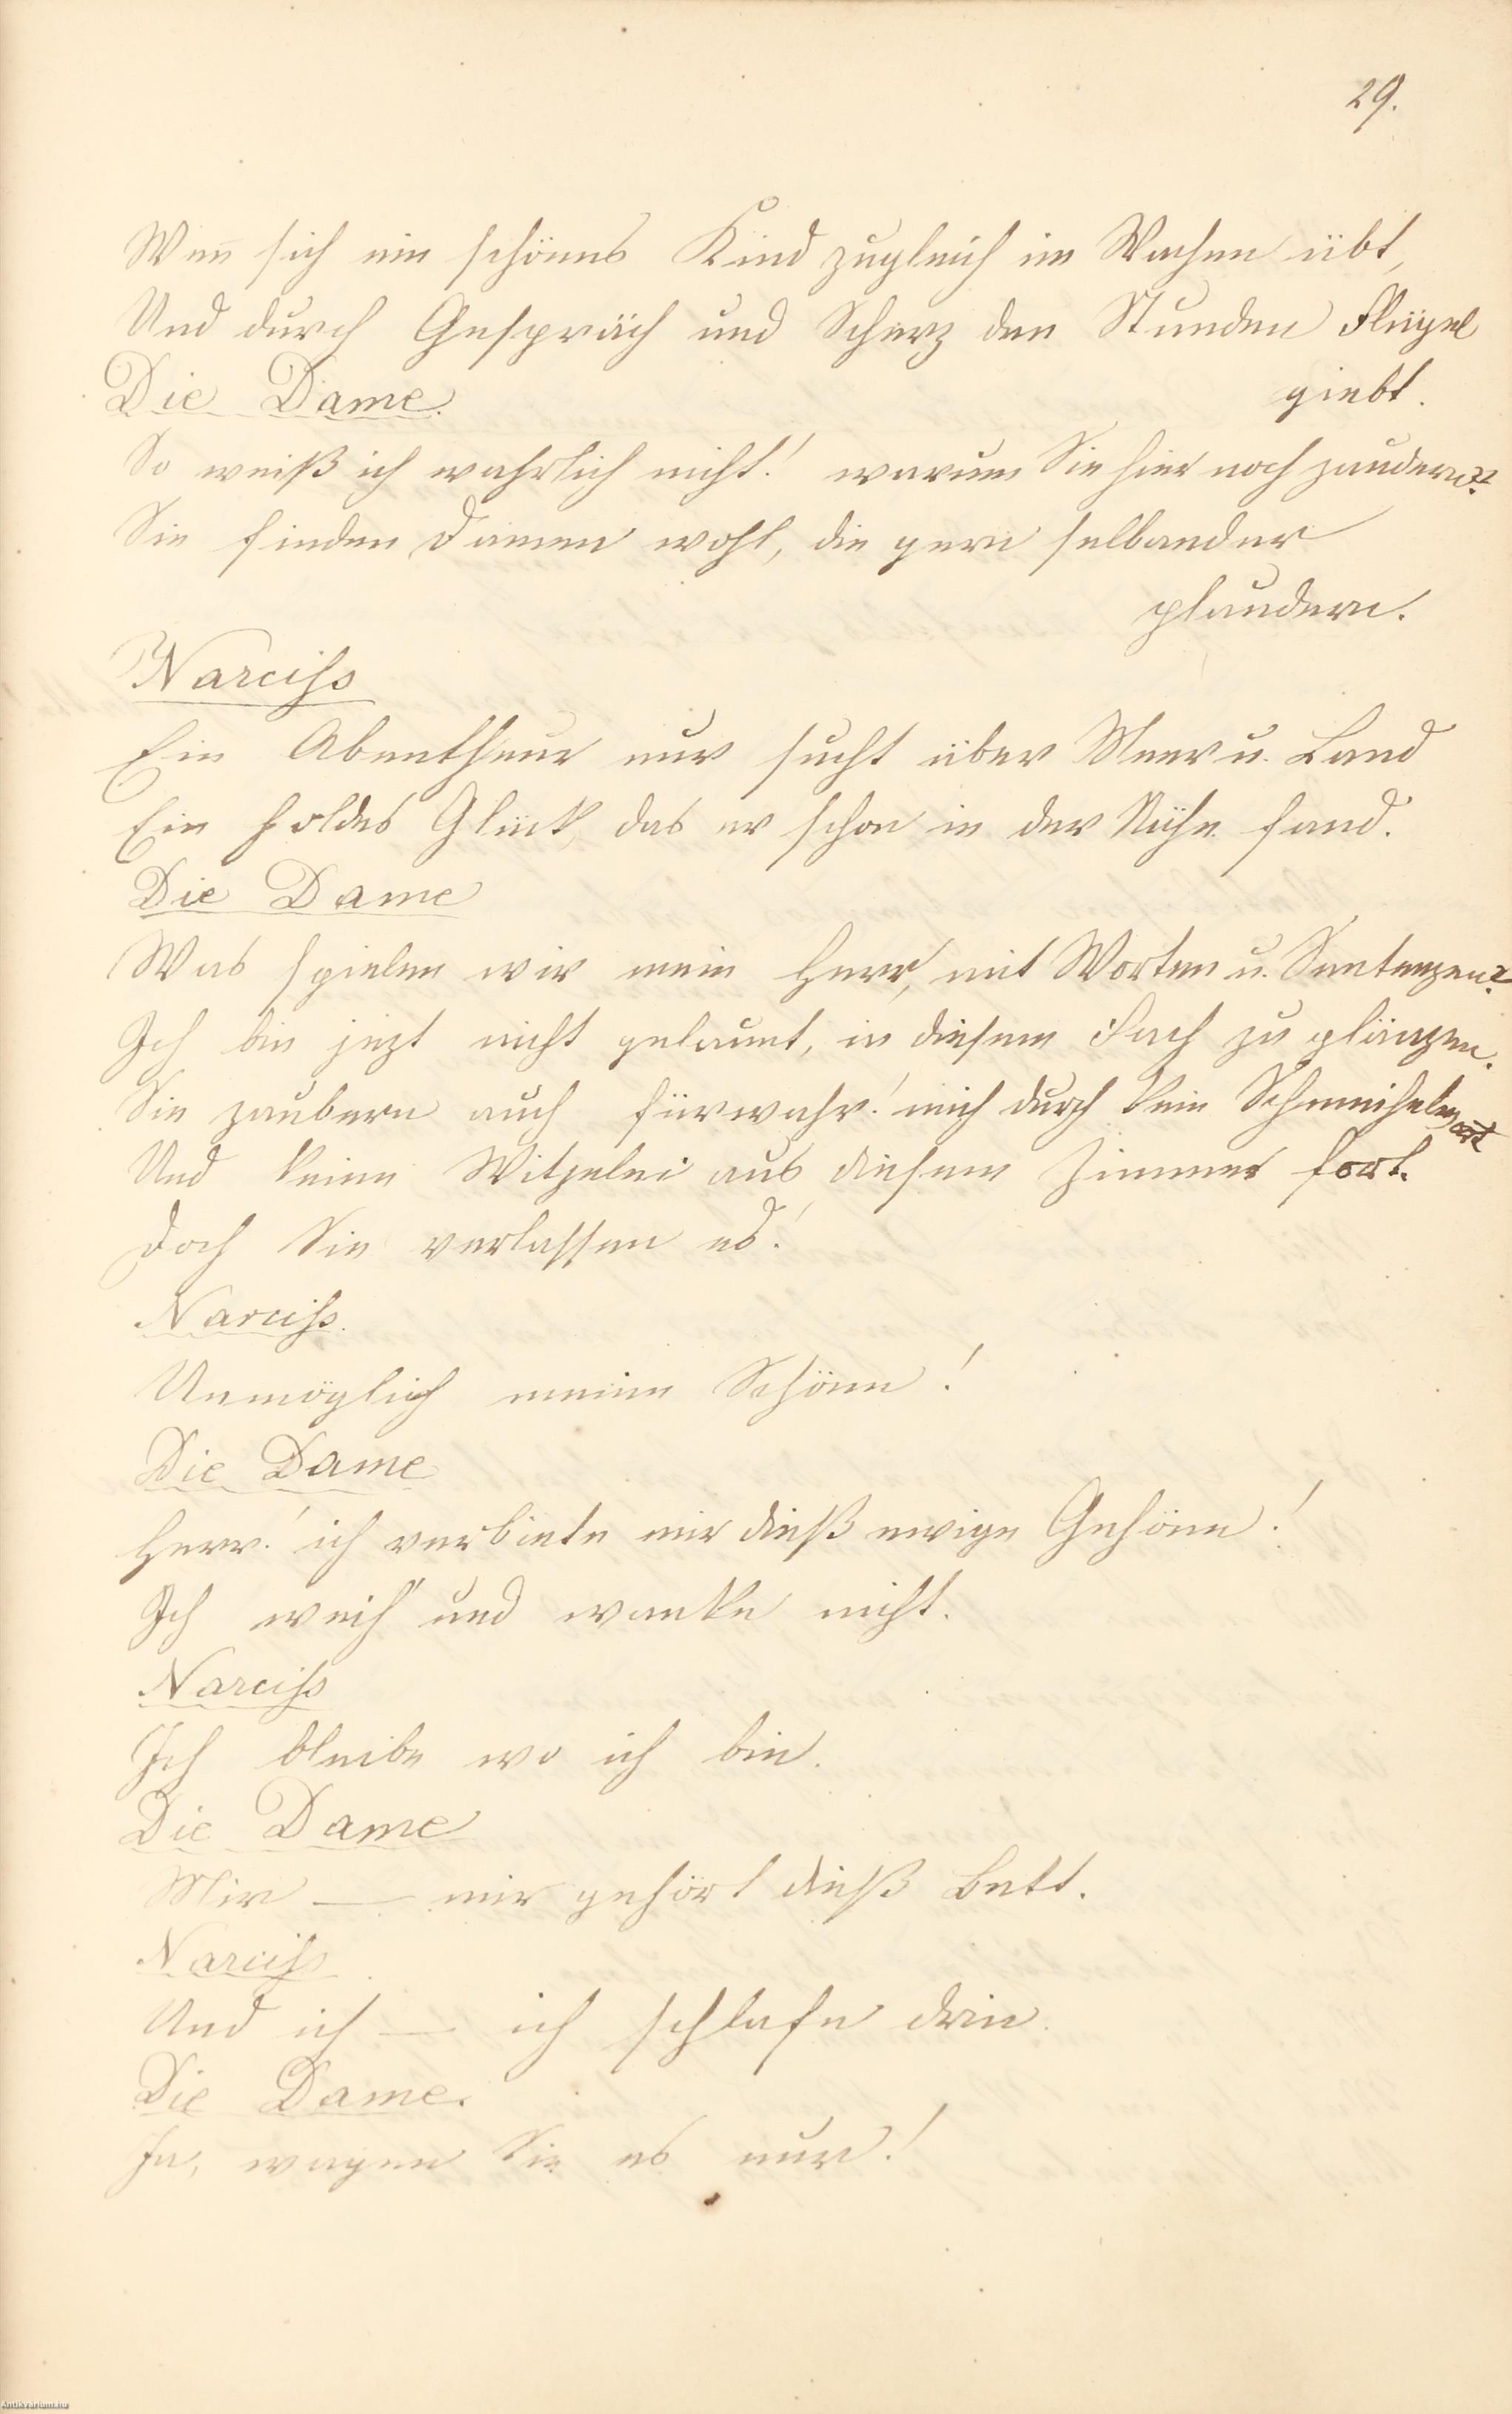 29.
Wen̄ sich ein schönes Kind zugleich im Wachen übt,
Und durch Gespräch und Scherz den Stunden Flügel
giebt.
Die Dame.
So weiß ich wahrlich nicht! warum Sie hier noch zaudern?
Sie finden Damen wohl, die gern selbander
plaudern.
Narciss
Ein Abentheur nur sucht über Meer u. Land
Ein holdes Glück, das er schon in der Nähe fand.
Die Dame
Was spielen wir mein Herr, mit Worten u. Sentenzen?
Ich bin jezt nicht gelaunt, in diesem Fach zu glänzen.
Sie zaubern auch fürwahr! mich durch kein Schmeichelwort
Und keine Witzelei aus diesem Zimmer fort.
Doch Sie verlassen es!
Narciss.
Unmöglich meine Schöne!
Die Dame
Herr! ich verbiete mir dieß ewige Gehöne!
Ich weich' und wanke nicht.
Narciss
Ich bleibe wo ich bin.
Die Dame
Mir — mir gehört dieß Bett.
Narciss
Und ich — ich schlafe drin.
Die Dame.
Ha, wagen Sie es nur!
Antikvarium.hu